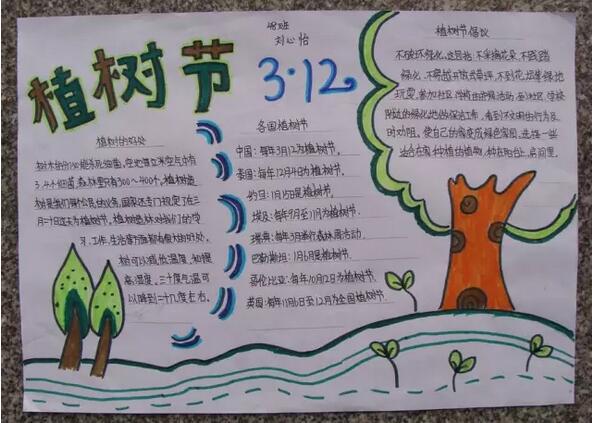 植树节
48班
刘心怡
3·12
植树的好处
树木的分泌物能杀死细菌,空地每立米空气中有
3、4个细菌,森林里只有300~400个,植树造
树是我们每个公民的义务,国家还专门规定了在三
月十二日这天为植树节。植树造林对我们的学
习、工作、生活等方面都有着大的好处。
树可以减低温度,和提
高湿度,三十度气温可
以降到二十几度左右。
各国植树节
中国:每年3月12为植树节。
美国:每年12月4日为植树节。
约旦:1月15日是植树节。
埃及:每年9月至1月为植树节.
瑞典:每年3月举行森林周活动.
巴勒斯坦:1月6是植树节.
哥伦比亚:每年10月2日为植树节.
英国:每年11月6日至12月为全国植树节.
植树节倡议
不破坏绿化,这包括:不采摘花朵,不践踏
绿化,不得越开放式草坪,不到花坛草绿地
玩耍,参加社区,学校的护绿活动,到社区、学校
附近的绿化地做保洁工作,看到不文明的行为及
时劝阻,使自己的家变成绿色家园,选择一些
适合在家种植的植物,种在阳台上、房间里.